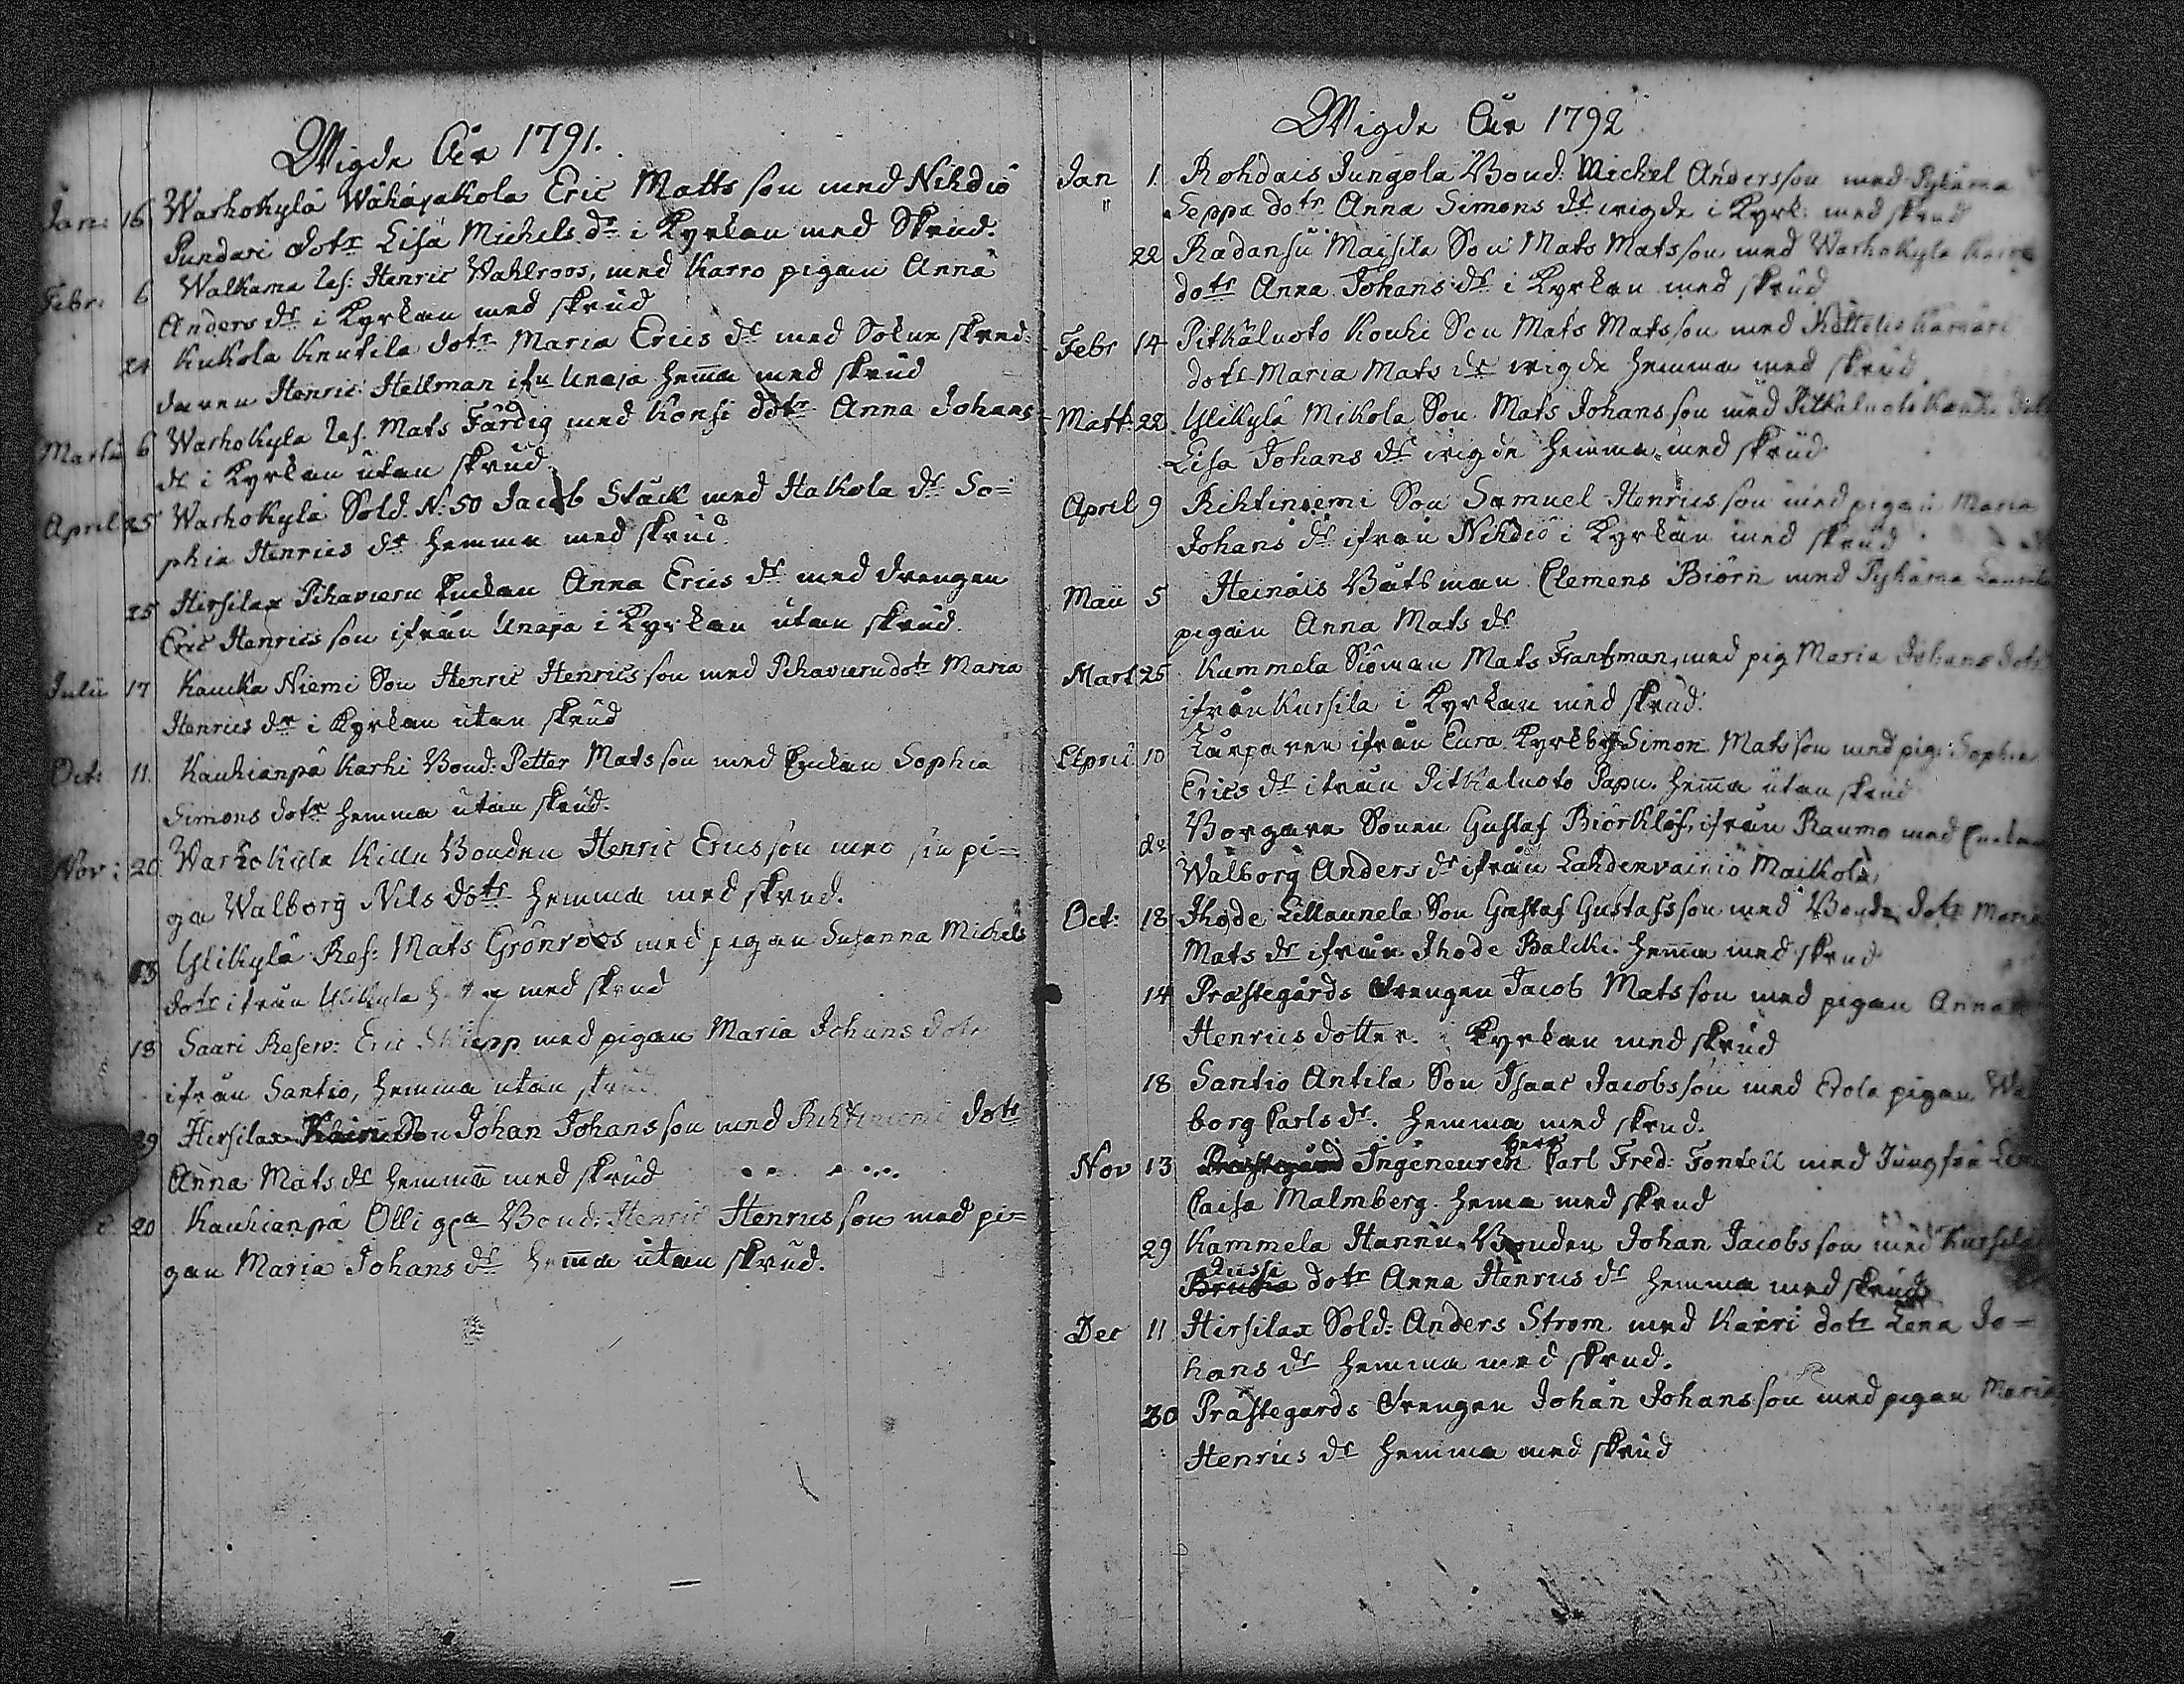 Wigde Åhr 1791.
Jan: 16 Warhokylä Wähäjakola Eric Matts son med Nihdiö
Pundari dotr Lisa Michels dr i Kyrkan med Skrud.
Febr: 6 Walkama Res: Henric Wahlroos, med Karro pigan Anna
Anders dr i Kyrkan med skrud
24 Kukola Knutila dotr Maria Erics dr med Sokne skred-
daren Henric Hellman ifn Unaja hem̄a med skrud
Martii 6 Warhokyla Res. Mats Färdig med Konsi dotr Anna Johans
dr i Kyrkan utan skrud
April 25 Warhokylä Sold. N: 50 Jacob Stäck med Hakola dr So=
phia Henrics dr hemma med skrud.
25 Hirsilax Pihavieru Enkan Anna Erics dr med drengen
Eric Henrics son ifrån Unaja i Kyrkan utan skrud.
Julii 17 Kaucka Niemi Son Henric Henrics son med Pihavieru dotr Maria
Henrics dr i Kyrkan utan skrud
Oct: 11. Kauhianpä Karhi Bond: Petter Mats son med Enkan Sophia
Simons dotr hemma utan skrud.
Nov: 20 Warhokyla Killu Bonden Henric Erics son med sin pi=
ga Walborg Nils dotr hemma med skrud.
13 Ylikylä Res: Mats Grönroos med pigan Susanna Michels
dotr ifrån Ylikyla med skrud
18 Saari Reserv: Eric med pigan Maria Johans dotr
ifrån Santio, hemma utan skrud
29 Hirsilax Son Johan Johans son med Rihtiniemi dotr
Anna Mats dr hemma med skrud
20 Kauhianpä Olli Bond: Henric Henrics son med pi=
gan Maria Johans dr hem̄a utan skrud.
Wigde Åhr 1792
Jan 1. Rohdais Jungola Bond: Michel Andersson med Pyhäma
" Seppä dotr Anna Simons dr wigde i Kyrk: med skrud
22 Radansu Maisila Son Mats Mats son med Warhokyla
dotr Anna Johans dr i Kyrkan med skrud
Febr 14 Pitkäluoto Kouhi Son Mats Mats son med Kåttelis Kamari
dotr Maria Mats dr wigde hemma med skrud
Mart: 22. Ylikylä Mikola Son Mats Johans son med Pitkäluoto
Lisa Johans dr wigde hemma med skrud
April 9 Rihtiniemi Son Samuel Henrics son med pigan Maria
Johans dr ifrån Nihdiö i Kyrkan med skrud
Maii 5 Heinäis Båtsman Clemens Biörn med Pyhäma
pigan Anna Mats dr
Mart 25 Kammela Siöman Mats Frantsman, med pig Maria Johans dotr
ifrån Kursila i Kyrkan med skrud.
April 10 ifrån Eura Kyrkby Simon Mats son med pig: Sophia
Erics dr ifrån Pitkäluoto Papu. hem̄a utan skrud
do Borgare Sonen Gustaf Biörklöf, ifrån Raumo med Enkan
Walborg Anders dr ifrån Lahdenvainio Maikola
Oct: 18 Ihode Lillaunela Son Gustaf Gustafs son med Bonde dotr Maria
Mats dr ifrån Ihode Balcki. hem̄a med skrud
14 Prästegårds drengen Jacob Mats son med pigan Anna
Henrics dotter. i Kyrkan med skrud
18 Santio Antila Son Isaac Jacobs son med Erola pigan Wal
borg Carls dr. hemma med skrud.
Nov 13 Prästegård Ingeneuren Herr Carl Fred: Fontell med Jungfru
Caisa Malmberg. hema med skrud
29 Kammela Hannu Bonden Johan Jacobs son med Kursila
Jussi
dotr Anna Henrics dr hemma med skrud
Dec 11 Hirsilax Sold: Anders Ström med Karri dotr Lena Jo=
hans dr hemma med skrud.
30 Prästegards drengen Johan Johans son med pigan Maria
Henrics dr hemma med skrud